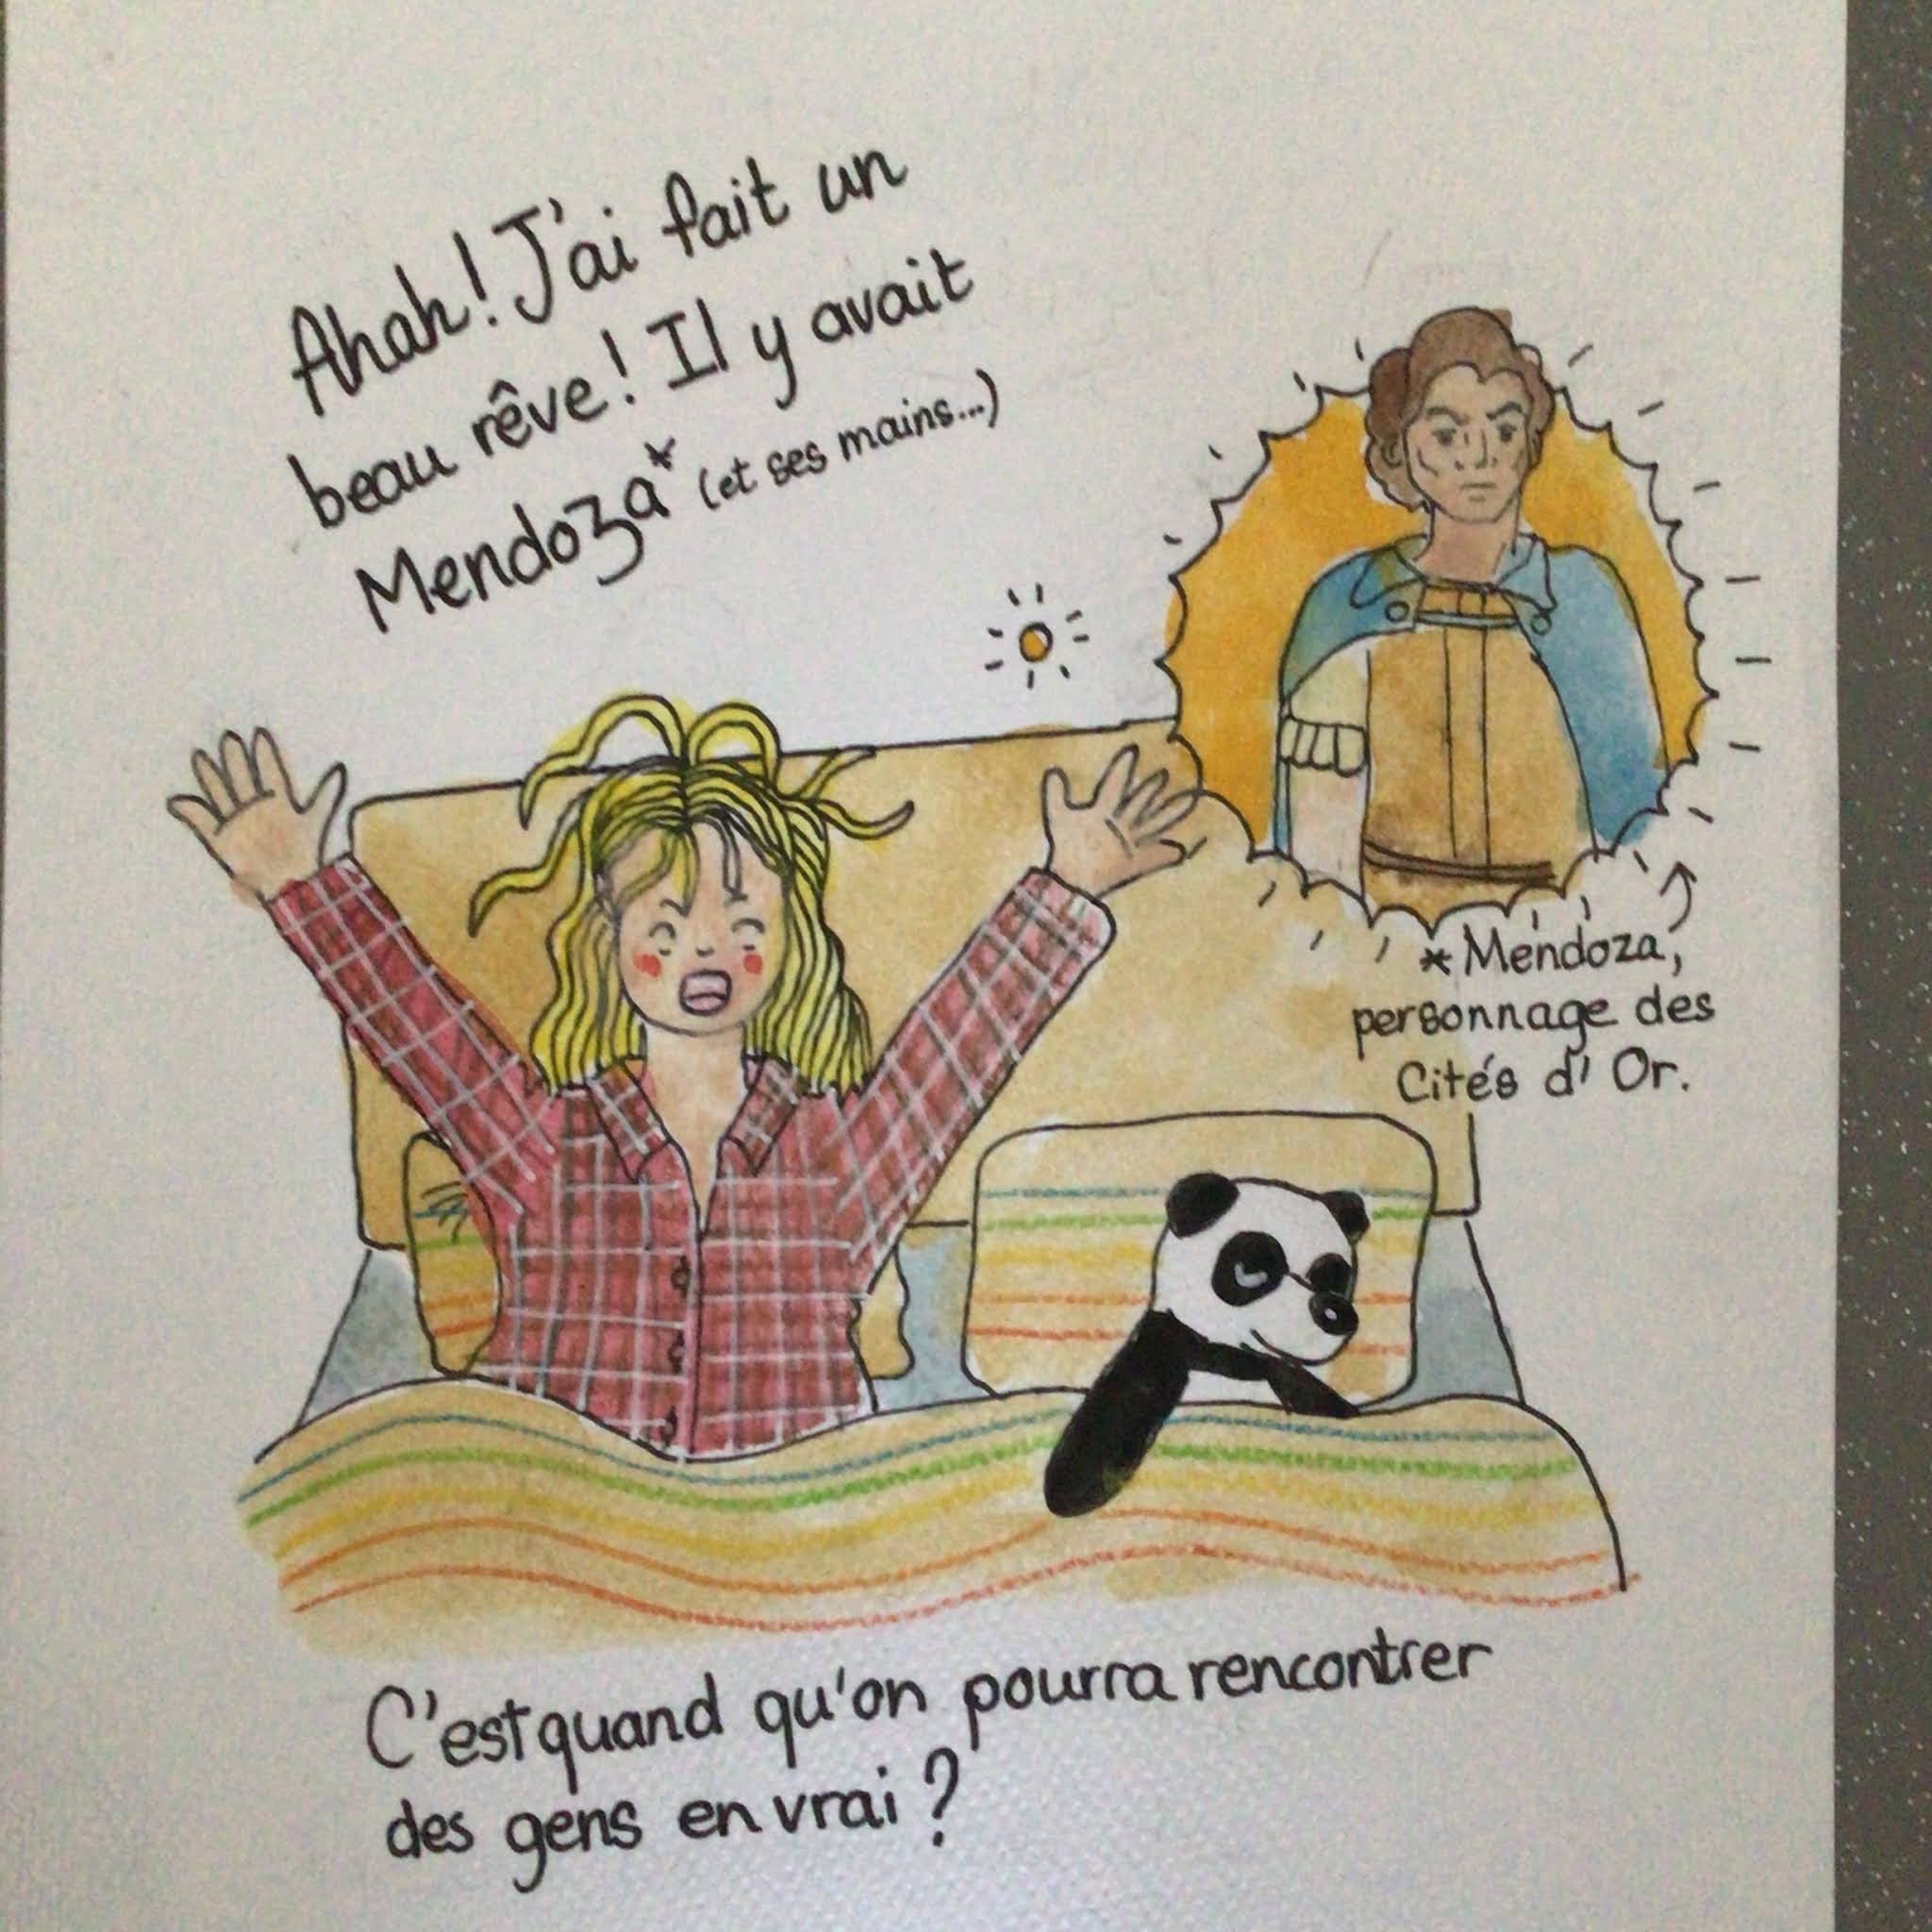 Ahah! J'ai fait un
beau rêve! Il y avait
Mendoza* (et ses mains...)
* Mendoza,
personnage des
Cités d'Or.
C'est quand qu'on pourra rencontrer
des gens en vrai ?